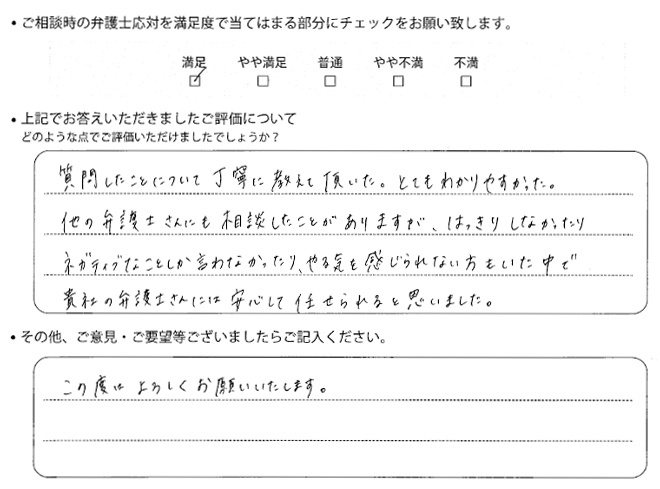 • ご相談時の弁護士応対を満足度で当てはまる部分にチェックをお願い致します。
満足 やや満足 普通 やや不満 不満
☑ □ □ □ □
• 上記でお答えいただきましたご評価について
どのような点でご評価いただけましたでしょうか？
質問したことについて丁寧に教えて頂いた。とてもわかりやすかった。
他の弁護士さんにも相談したことがありますが、はっきりしなかったり
ネガティブなことしか言わなかったり、やる気を感じられない方もいた中で
貴社の弁護士さんには安心して任せられると思いました。
• その他、ご意見・ご要望等ございましたらご記入ください。
この度はよろしくお願いいたします。